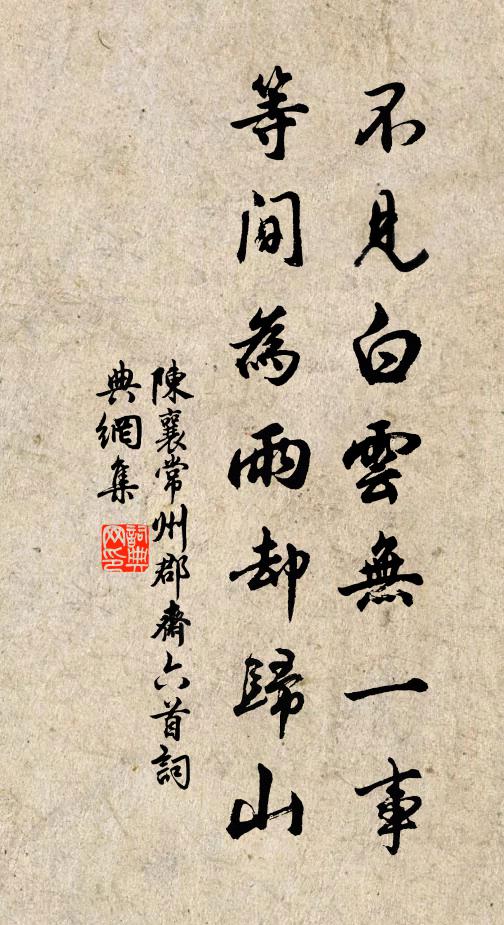 不見白雲無一事
等間為雨却歸山
陳襄常州郡齋六首詞
典網集
詞典網印